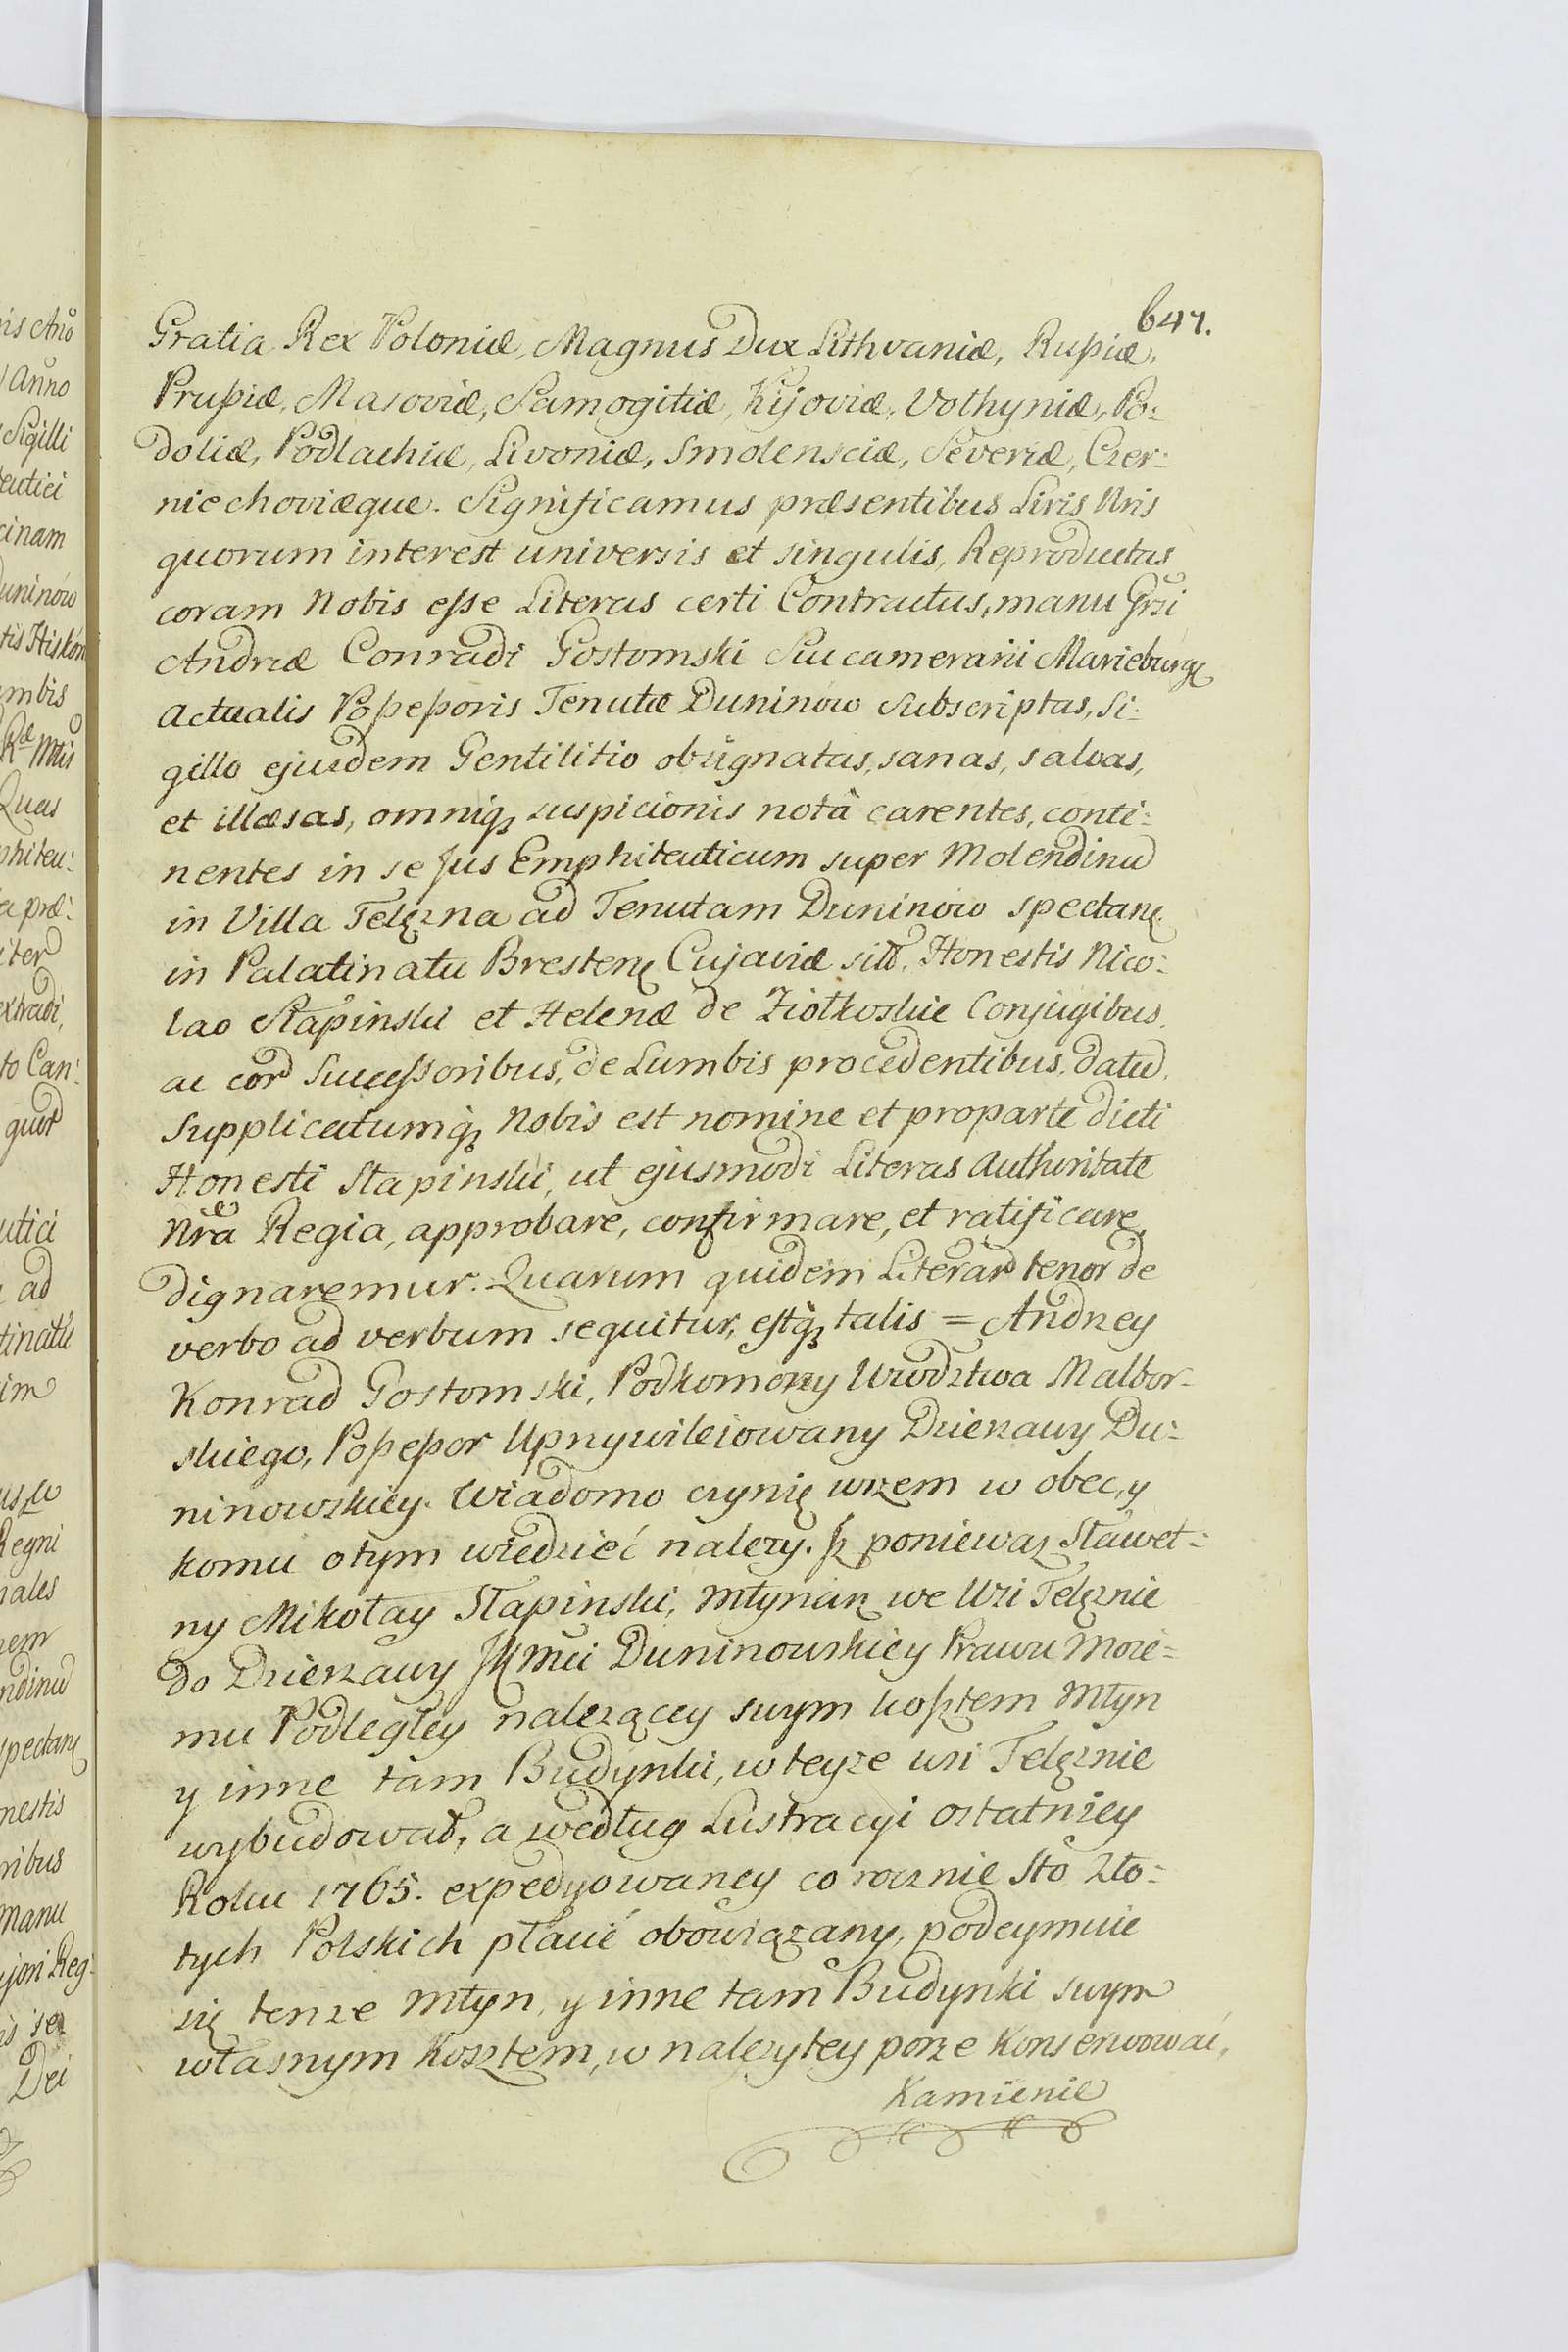 647.
Gratia Rex Poloniæ, Magnus Dux Lithvaniæ, Rußiæ,
Prußiæ, Masoviæ, Samogitiæ, Kijoviæ, Volhyniæ, Po:
doliæ, Podlachiæ, Livoniæ, Smolensciæ, Severiæ, Czer:
niechoviæque. Significamus præsentibus Liris Nris
quorum interest universis et singulis, Reproductas
coram Nobis esse Literas certi Contractus, manu Grsi
Andreæ Conradi Gostomski Succamerarii Marieburgę
actualis Poßeßoris Tenutæ Duninow subscriptas, Si:
gillo ejusdem Gentilitio obsignatas, sanas, salvas,
et illæsas, omniqȝ suspicionis notâ carentes, conti:
nentes in se Jus Emphiteuticum super Molendinū
in Villa Telęzna ad Tenutam Duninow spectanę
in Palatinatu Brestenę Cujaviæ sitō, Honestis Nico:
lao Słapinski et Helenæ de Ziołkoskie Conjugibus,
ac eord Successoribus, de Lumbis procedentibus, datū.
Supplicatumqȝ Nobis est nomine et proparte dicti
Honesti Słapinski, ut ejusmodi Literas Authoritate
Nrã Regia, approbare, confirmare, et ratificare,
dignaremur. Quarum quidem Literard tenor de
verbo ad verbum sequitur, estqȝ talis = Andrzey
Konrad Gostomski, Podkomorzy Wwodztwa Malbor-
skiego, Poßeßor Uprzywileiowany Dzierzawy Du:
ninowskiey. Wiadomo czynię wszem w obec, y
komu o tym wiedzieć nalezy. Jż poniewaz Sławet:
ny Mikołay Słapinski, Młynarz we Wsi Telęznie
do Dzierzawy JKMci Duninowskiey Prawu Moie-
mu Podległey nalezącey swym kosztem Młyn
y inne tam Budynki, w teyze wsi Telęznie
wybudował, a według Lustracyi ostatniey
Roku 1765. expedyowaney co rocznie Sto Zło:
tych Polskich płacić obowiązany, podeymuie
się tenze Młyn, y inne tam Budynki swym
własnym Kosztem, w nalezytey porze Konserwować,
Kamienie